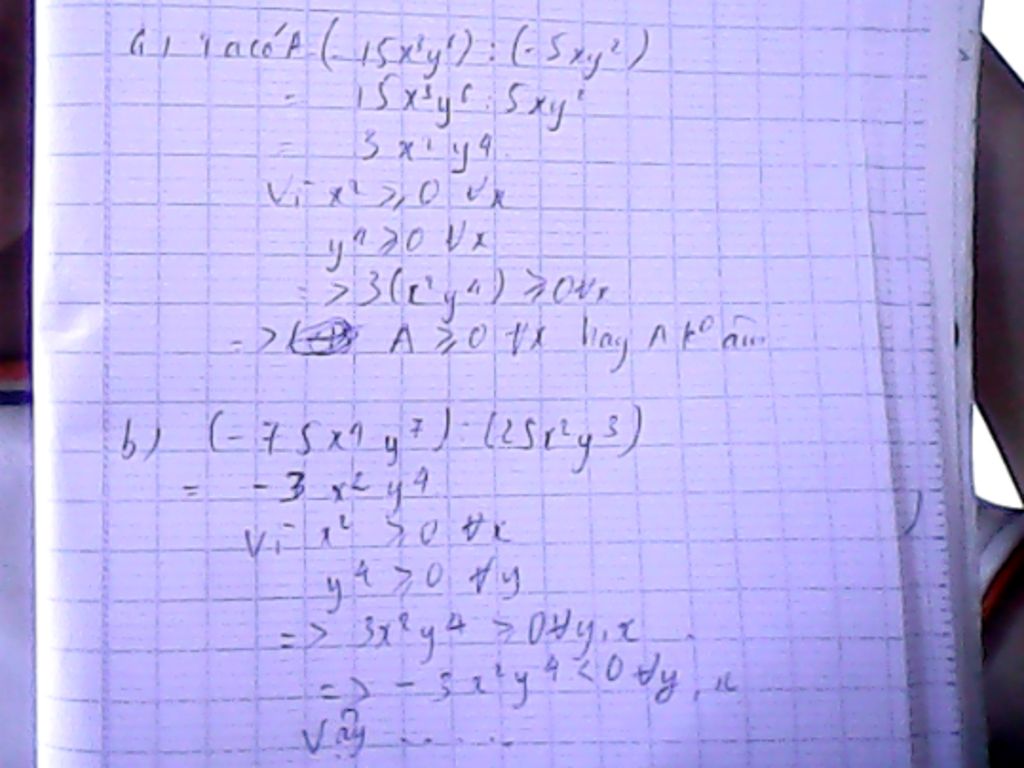 Ta có A (-15x³y⁶) : (-5xy²)
= 15x³y⁶ : 5xy²
= 3 x² y⁴
Vì x² ⩾ 0 ∀x
y⁴ ⩾ 0 ∀x
=> 3(x²y⁴) ⩾ 0 ∀x
=> A ⩾ 0 ∀x hay A k⁰ âm
b) (-75x⁴y⁷) : (25x²y³)
= -3 x² y⁴
Vì x² ⩾ 0 ∀x
y⁴ ⩾ 0 ∀y
=> 3x²y⁴ ⩾ 0 ∀y, x
=> -3x²y⁴ < 0 ∀y, x
Vậy .. . ..